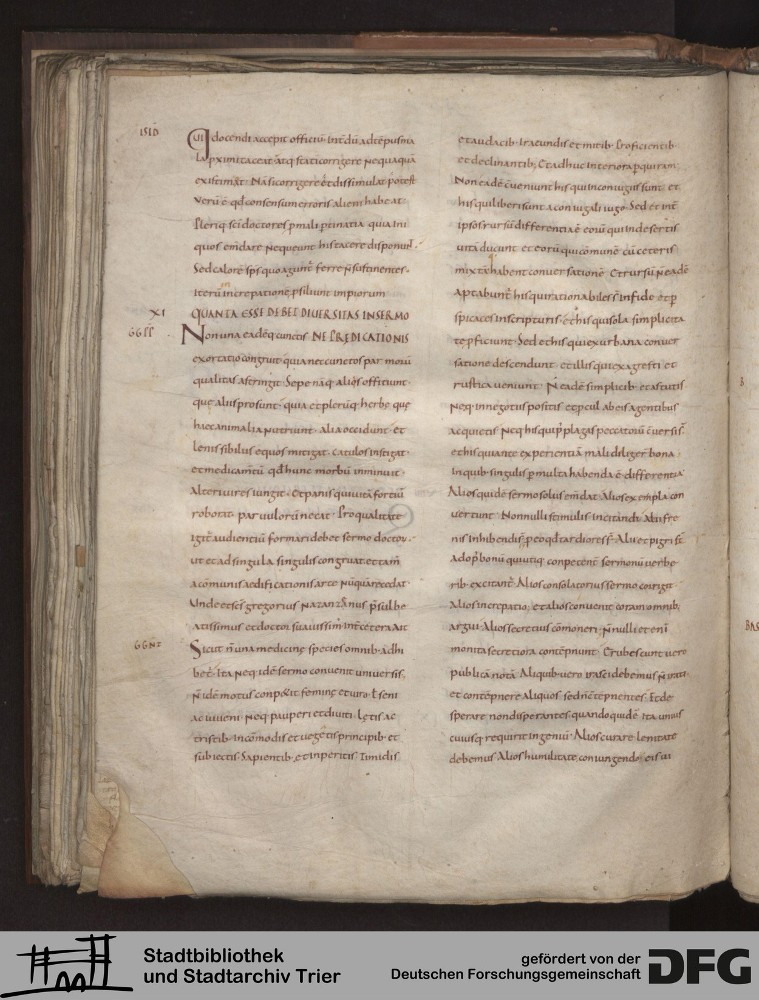 ISID
Qui docendi accepit officiũ Int̃dũ ad tẽpus ma
la pximi taceat atq; stati corrigere Nequaquã
existimat Nã si corrigere et dissimulat potest
Verũ ẽ qd consensum erroris alieni habeat
Pleriq; sc̃i doctores p mali ptinatia quia Ini
quos em̃dare Nequeunt his tacere disponunt
Sed calorẽ sp̃s quo agunt̃ ferre ñ sustinentes
Iterũ in increpationẽ psiliunt impiorum
XI
QUANTA ESSE DEBET DIVERSITAS IN SERMO
GG PP
Non una eadẽq; cunctis NE PREDICATIONIS
exortatio congruit quia nec cunctos par morũ
qualitas astringit Sepe nãq; aliis officiunt
que aliis prosunt quia et plerũq; herbe que
haec animalia Nutriunt alia occidunt et
lenis sibilus equos mitigat catulos instigat
et medicam̃tũ qd hunc morbũ inminuit
Alteri vires iungit Et panis qui vitã fortiũ
roborat parvulorũ necat Pro qualitate
Igit̃ audientiũ formari debet sermo doctorum
ut et ad singula singulis congruat et tam̃
a cõmunis aedificationis arte Nũquã recedat
Unde et sc̃s gregorius Nazanzanus p̃sul be
atissimus et doctor suavissim; Int̃ cetera Ait
GG Nz
Sicut ñ una medicine species omnib; adhi
bet̃ Ita Neq; idẽ sermo convenit universis
Ñ idẽ motus conpetit femine et viro ł seni
ac iuveni Neq; pauperi et diviti Letis ac
tristib; Incõmodis et vegetis principib; et
subiectis Sapientib; et inperitis Timidis
et audacib; Iracundis et mitib; Proficientib;
et declinantib; Et ad huc Interiora pquiram;
Non eadẽ cveniunt his qui in coniugiis sunt et
his qui liberi sunt a coniugali iugo Sed et int̃
ipsos rursũ differentia ẽ eorũ qui in desertis
vitã ducunt et eorũ qui cõmunẽ cũ ceteris
mixtã habent conversationẽ Et rursũ Ñ eadẽ
Aptabunt̃ his qui rationabiles s̃t in fide et p
spicaces in scripturis et his qui sola simplicita
te pficiunt Sed et his qui ex urbana conver
satione descendunt et illis qui ex agresti et
rustica veniunt Ñ eadẽ simplicib; et astutis
Neq; in negotiis positis et pcul ab eis agentibus
ac quietis Neq; his qui p plagas peccatorũ cversi s̃t
et his qui ante experientiã mali diliger̃ bona
In quib; singulis p multa habenda ẽ differentia
Alios quidẽ sermo solus em̃dat Alios exempla con
vertunt Nonnulli stimulis Incitandi Alii fre
nis Inhibendi
ad op; bonũ
rib; excitant̃ Alios consolatorius sermo corrigit
Alios increpatio et alios convenit coram omnib;
argui Alios secretius cõmoneri Ñnulli et enĩ
monita secretiora contẽpnunt Erubescunt vero
publicã notã Aliquib; vero irasci debemus
et contẽpnere aliquos sed ñ cttẽpnentes Et de
sperare non disperantes quando quidẽ Ita unius
cuiusq; requirit ingeniũ Alios curare lenitate
debemus Alios humilitate
BAS
Stadtbibliothek
und Stadtarchiv Trier
gefördert von der
Deutschen Forschungsgemeinschaft
DFG